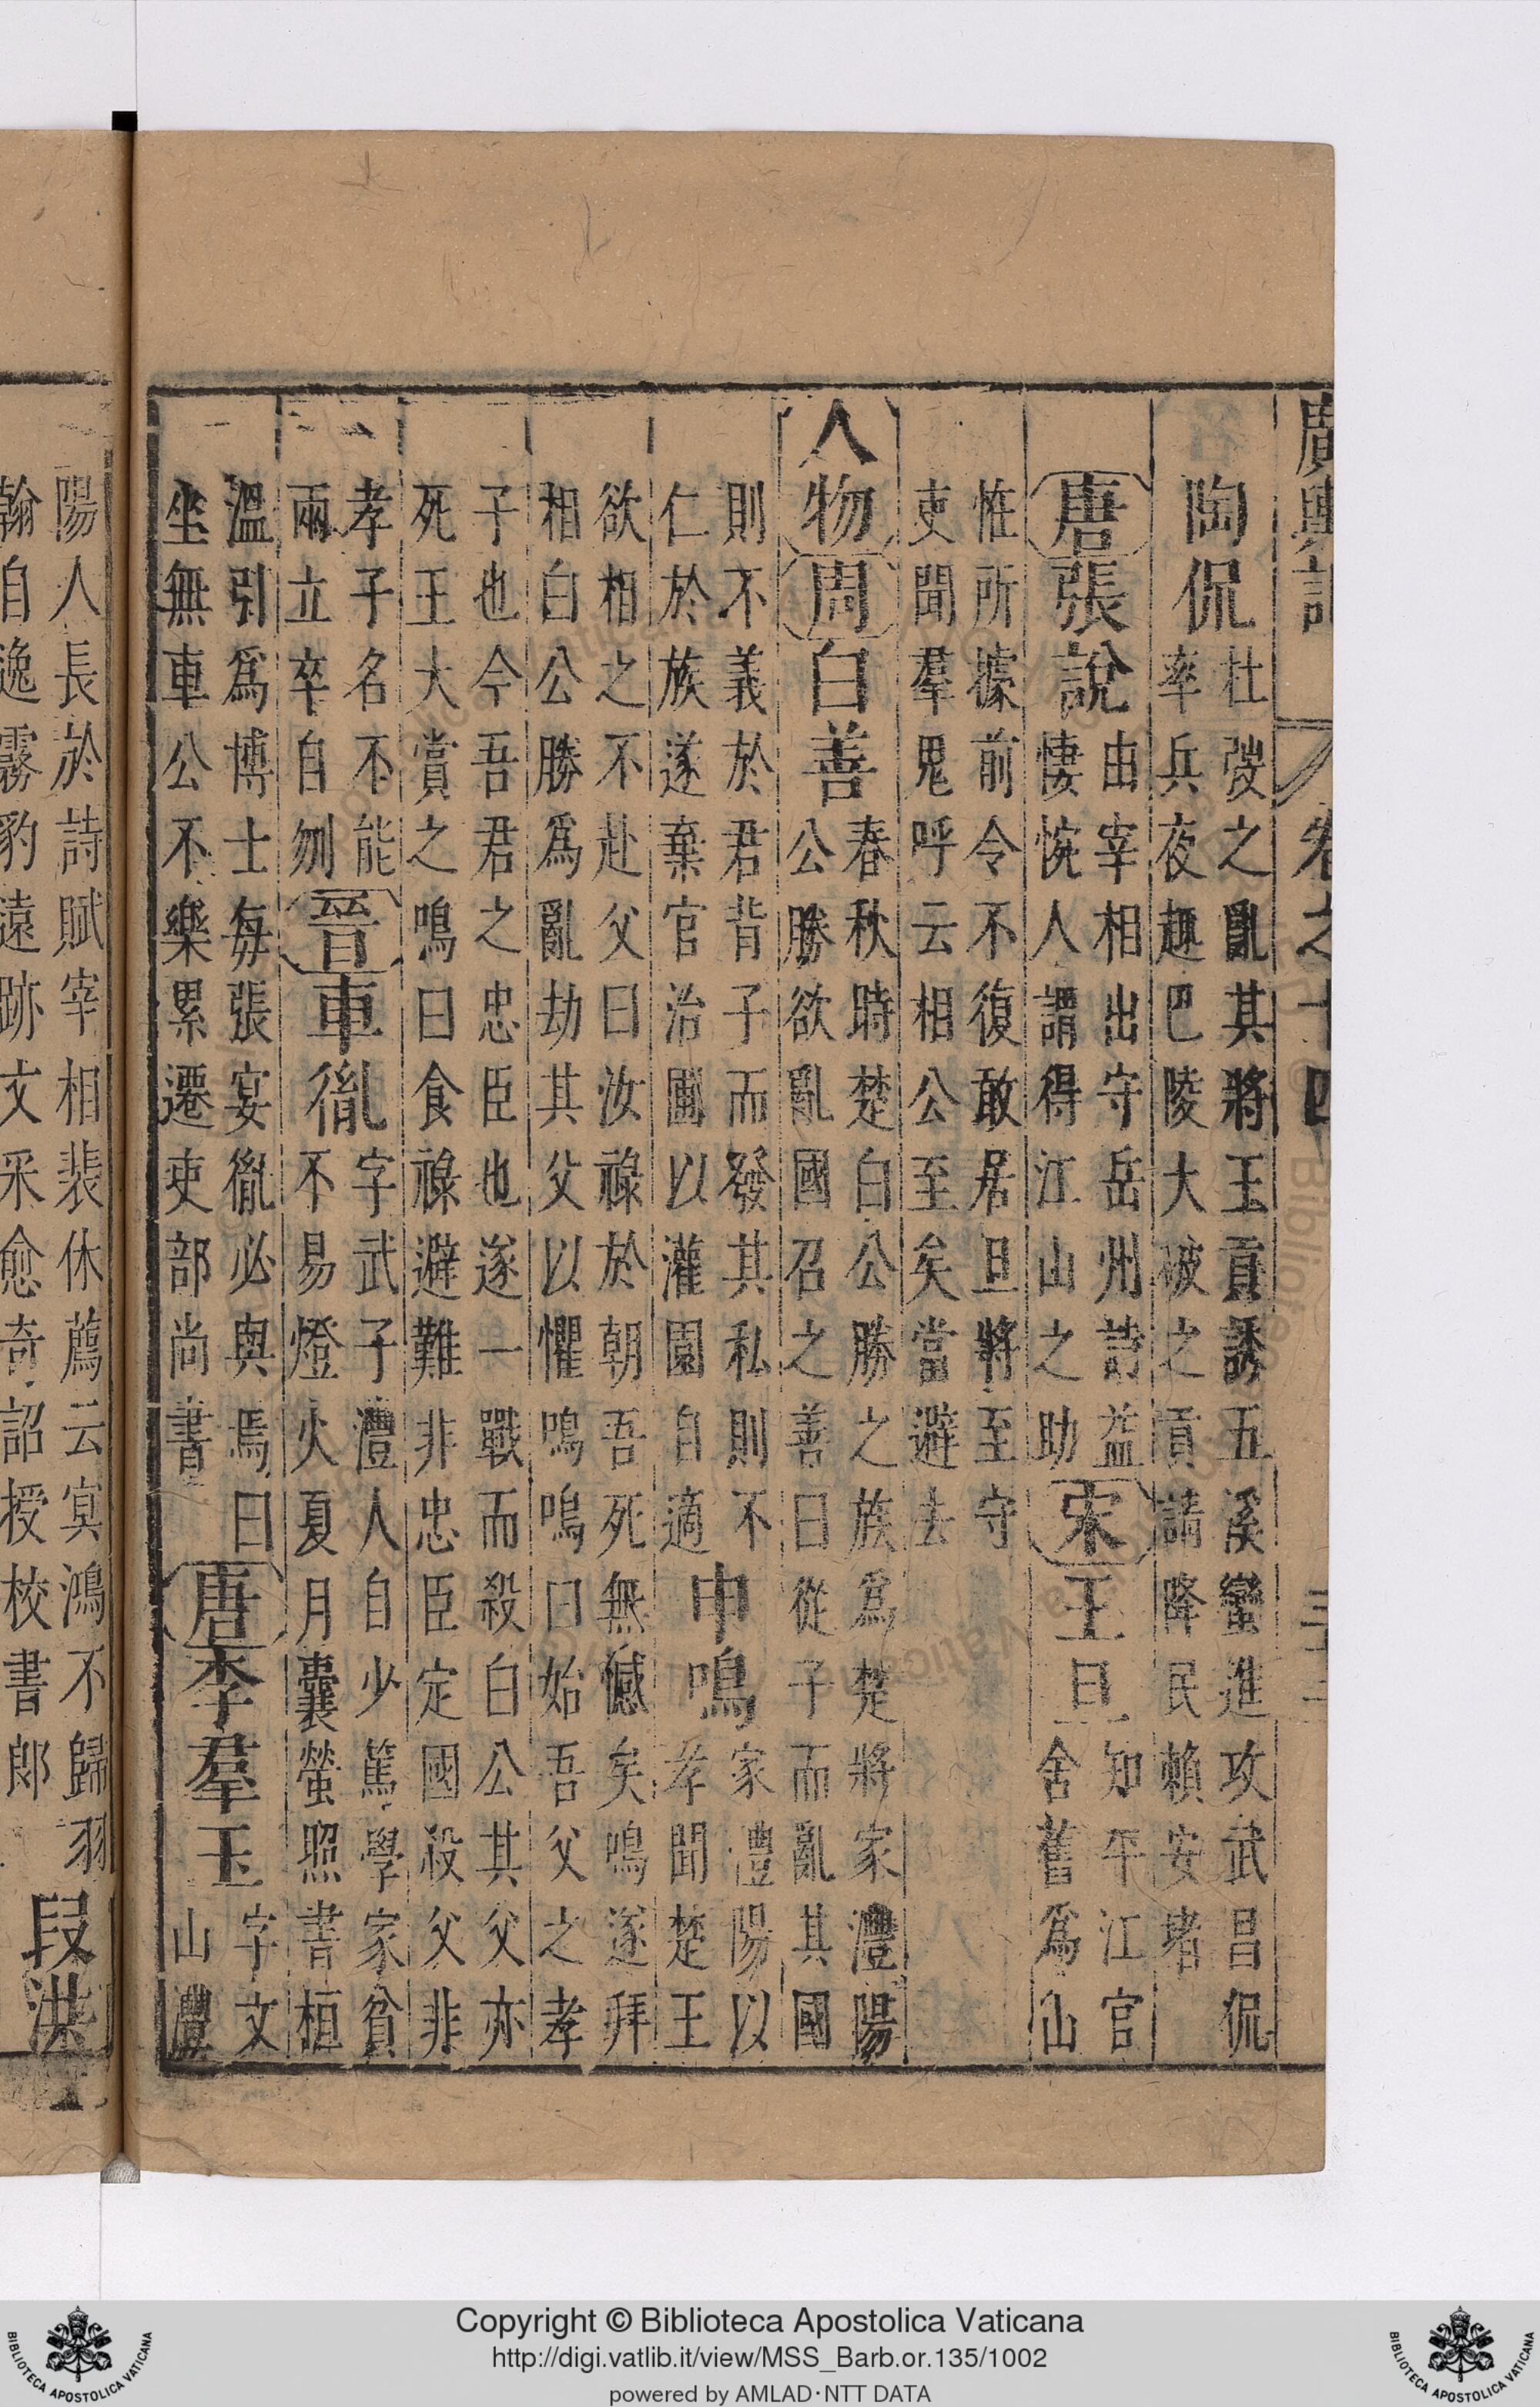 廣輿記 卷之十四
陶侃
杜弢之亂其將王貢誘五溪蠻進攻武昌侃
率兵夜趣巴陵大破之貢請降民賴安堵
唐張說
由宰相出守岳州詩益
悽惋人謂得江山之助
宋王旦
知平江官
舍舊爲山
恠所據前令不復敢居旦將至守
吏聞羣鬼呼云相公至矣當避去
人物周白善
春秋時楚白公勝之族爲楚將家澧陽
公勝欲亂國召之善曰從子而亂其國
則不義於君背子而發其私則不
仁於族遂棄官治圃以灌園自適
申鳴
家澧陽以
孝聞楚王
欲相之不赴父曰汝祿於朝吾死無憾矣鳴遂拜
相白公勝爲亂劫其父以懼鳴鳴曰始吾父之孝
子也今吾君之忠臣也遂一戰而殺白公其父亦
死王大賞之鳴曰食祿避難非忠臣定國殺父非
孝子名不能
兩立卒自刎
晉車胤
字武子澧人自少篤學家貧
不易燈火夏月囊螢照書桓
溫引爲博士每張宴胤必與焉曰
坐無車公不樂累遷吏部尚書
唐李羣玉
字文
山澧
陽人長於詩賦宰相裴休薦云㝠鴻不歸羽
翰自逸霧豹遠跡文采愈奇詔授校書郎
段洪
Copyright © Biblioteca Apostolica Vaticana
http://digi.vatlib.it/view/MSS_Barb.or.135/1002
powered by AMLAD·NTT DATA
BIBLIOTECA APOSTOLICA VATICANA
BIBLIOTECA APOSTOLICA VATICANA